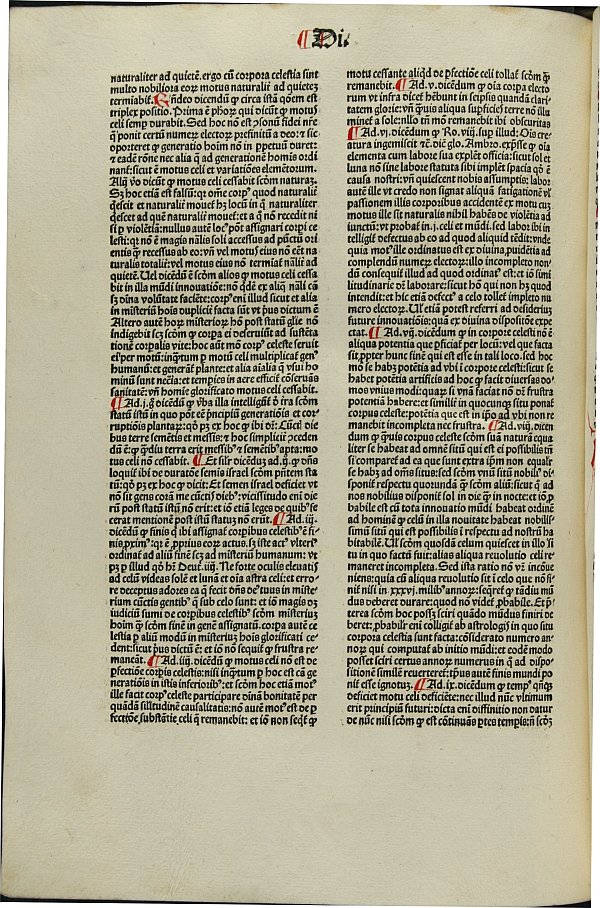 ¶ Di.
naturaliter ad quietē. ergo cū corpora celestia sint
multo nobiliora eorū motus naturalit̓ ad quietez
termīabit̄. Rn̄deo dicendū ꝙ circa istā q̄oem est
triplex positio. Prima ē phōr qui dicūt ꝙ motus
celi semp durabit. Sed hoc nō est ↄsonū fidei nr̄e
q̄ ponit certū numerū electorū presinitū a deo: ⁊ sic
oporteret ꝙ generatio hoīm nō in ppetuū duret:
⁊ eadē rōne nec alia q̄ ad generationē homīs ordi
nant̄: sicut ē motus celi ⁊ variatiões elemētorum.
Alij v̓o dicūt ꝙ motus celi cessabit scḋm naturaz.
Sz hoc etiā est falsū: qr om̄e corpꝰ quod naturalit̓
q̄escit ⁊ naturalit̓ mouet̄ hz locū in q̄ naturaliter
q̄escet ad quē naturalit̓ mouet̄: ⁊ a q̄ nō recedit ni
si p violētiā: nullus autē locꝰ pōt assignari corpi ce
lesti: qr nō ē magis nālis soli accessus ad pūctū ori
entis ꝙ recessus ab eo: vn̄ vel motꝰ eius nō eēt na
turalis totalit̓: vel motus eius nō termīat̄ nālit̓ ad
quietē. Uel dicēdū ē scḋm alios ꝙ motus celi cessa
bit in illa mūdi innouatiōe: nō q̄dē ex aliq̄ nāli cā
sz dīna volūtate faciēte: corpꝰ enī illud sicut ⁊ alia
in misteriū hoīs duplici facta sūt vt pꝰ dictum ē
Altero autē horū misteriorū hō post statū gl̄ie nō
indigebit sz scḋm ꝙ corpa ei deseruiūt ad sustēta
tionē corpalis vite: hoc aūt mō corpꝰ celeste seruit
ei per motū: inq̄ntum p motū celi multiplicat̄ genꝰ
humanū: ⁊ generāt̄ plante: ⁊ alia aīalia q̄ vsui ho
minū sunt nc̄cia: ⁊ temperies in aere efficit̄ cōseruās
sanitatē: vn̄ homīe glorificato motus celi cessabit.
¶ Ad .j. q̄ dicēdū ꝙ v̓ba illa intelligūt̄ d̓ tr̄a scḋm
statū istū in quo pōt eē pn̄cipiū generatiōis ⁊ cor
ruptiōis plantarū: qḋ pz ex hoc ꝙ ibi dr̄: Cūctꝭ die
bus terre semētis ⁊ messis: ⁊ hoc simplicit̓ ↄcedēn
dū ē: ꝙ q̄mdiu terra erit messibꝰ ⁊ semētibꝰ apta: mo
tus celi nō cessabit. ¶ Et sil̓r dicēduz ad .ij. ꝙ dn̄s
loquit̄ ibi de duratōe semīs israel scḋm pn̄tem sta
tū: qḋ pz ex hoc ꝙ dicit: Et semen israel deficiet vt
nō sit gens corā me cūctꝭ diebꝰ: vicissitudo enī die
rū post statū istū nō erit: ⁊ iō etiā leges de quibꝰ fe
cerat mentionē post istū statuz nō erūt. ¶ Ad .iij.
dicēdū ꝙ finis q̄ ibi assignat̄ corpibus celestibꝰ ē fi
nis pxīmꝰ: qr ē pprius eorū actus. sz iste actꝰ vlteriꝰ
ordinat̄ ad aliū finē scz ad misteriū humanum: vt
pz p illud qḋ hr̄ Deut. iiij. Ne forte oculis eleuatꝭ
ad celū videas solē ⁊ lunā ⁊ oīa astra celi: ⁊ erro-
re deceptus adores ea q̄ fecit dn̄s deꝰ tuus in miste
rium cūctis gentibꝰ q̄ sub celo sunt: ⁊ iō magis dz
iudiciū sumi de corpibus celestibꝰ scḋm misterium
hoīm ꝙ scḋm finē in gen̄ assignatū. corpa autē ce
lestia p aliū modū in misteriuz hoīs glorificati ce
dent: sicut pꝰ dictū ē: ⁊ iō nō sequit̄ ꝙ frustra re-
maneāt. ¶ Ad .iiij. dicēdū ꝙ motus celi nō est de
pfectiōe corpis celestis: nisi inq̄ntum p hoc est cā ge
nerationis in istis inferioribꝰ: ⁊ scḋm hoc etiā motꝰ
ille facit corpꝰ celeste participare dīnā bonitatē per
quādā sil̓itudinē causalitatis: nō autē motꝰ est de p
fectiōe substātie celi q̄ remanebit: ⁊ iō non seqt̄ ꝙ
motu cessante aliqḋ de pfectiōe celi tollat̄ scḋm ꝙ
remanebit. ¶ Ad .v. dicēdum ꝙ oīa corpa electo
rum vt infra dicet̄ hēbunt in seipsis quandā clari-
tatem glorie: vn̄ q̄uis aliqua supficies terre nō illu
minet̄ a sole: nullo tn̄ mō remanebit ibi obscuritas
¶ Ad .vi. dicēdum ꝙ Ro. viij. sup illud: Oīs cre
atura ingemiscit ⁊c̄. dic̄ glo. Ambro. exp̄sse ꝙ oīa
elementa cum labore sua explēt officia: sicut sol ⁊
luna nō sine labore statuta sibi implēt spacia: qḋ ē
causa nostri: vn̄ quiescent nobis assumptis: labor
autē ille vt credo non signat aliquā fatigationē vl̓
passionem illis corporibus accidentē ex motu cuz
motus ille sit naturalis nihil habēs de violētia ad
iunctū: vt probat̄ in .j. celi ⁊ mūdi. sed labor ibi in
telligit̄ defectus ab eo ad quod aliquid tēdit: vnde
quia motꝰ ille ordinatus est ex diuina puidētia ad
complendū numerū electorū: illo incompleto non
dū consequit̄ illud ad quod ordinatꝰ est: ⁊ iō simi
litudinarie dr̄ laborare: sicut hō qui non hz quod
intendit: ⁊ hic etiā defectꝰ a celo tollet̄ impleto nu
mero electorū. Uel etiā potest referri ad desideriuz
future innouatiōis: quā ex diuina dispositōe expe
ctat. ¶ Ad .vij. dicēdum ꝙ in corpore celesti nō ē
aliqua potentia que pficiat̄ per locū: vel que facta
sit ppter hunc finē qui est esse in tali loco. sed hoc
mō se habz potētia ad vbi ī corpore celesti: sicut se
habet potētia artificis ad hoc ꝙ facit diuersas do
mos vnius modi: quarū si vnā faciat nō dr̄ frustra
potentiā habere: ⁊ similit̓ in quocūqz situ ponat̄
corpus celeste: potētia que est in ipo ad vbi non re
manebit incompleta nec frustra. ¶ Ad .viij. dicen
dum ꝙ q̄uis corpus celeste scḋm suā naturā equa
liter se habeat ad omnē sitū qui est ei possibilis tn̄
si comparet̄ ad ea que sunt extra ipm non equalit̓
se habz ad oēs situs: sed scḋm vnū sitū nobilꝰ dis-
ponit̄ respectu quorundā ꝙ scḋm aliū: sicut q̄ ad
nos nobilius disponit̄ sol in die ꝙ in nocte: ⁊ iō p
babile est cū tota innouatio mūdi habeat ordinē
ad hominē ꝙ celū in illa nouitate habeat nobilis-
simū sitū qui est possibilis ī respectu ad nostrā ha
bitabilē. Uel scḋm quosdā celum quiescet in illo si
tu in quo factū fuit: alias aliqua reuolutio celi re-
maneret incompleta. Sed ista ratio nō vr̄ incōue
niens: quia cū aliqua reuolutio sit ī celo que nō fi-
nit̄ nisi in .xxxvi. milibꝰ annorū: seqr̄et̄ ꝙ tādiu mū
dus deberet durare: quod nō videt̄ pbabile. Et p̄-
terea scḋm hoc posz sciri quādo mūdus finiri de
beret: pbabilit̓ enī colligit̄ ab astrologis in quo situ
corpora celestia sunt facta: cōsiderato numero an-
norū qui computat̄ ab initio mūdi: ⁊ eodē modo
posset sciri certus annorū numerus in q̄ ad dispo-
sitionē similē reuerteret̄: tp̄us autē finis mundi po
nit̄ esse ignotuz. ¶ Ad .ix. dicēdum ꝙ tempꝰ qn̄qz
deficiet motu celi deficiēte: nec illud nūc vltimum
erit principiū futuri: dicta enī diffinitio non datur
de nūc nisi scḋm ꝙ est cōtinuās ptes tempis: nō scḋm